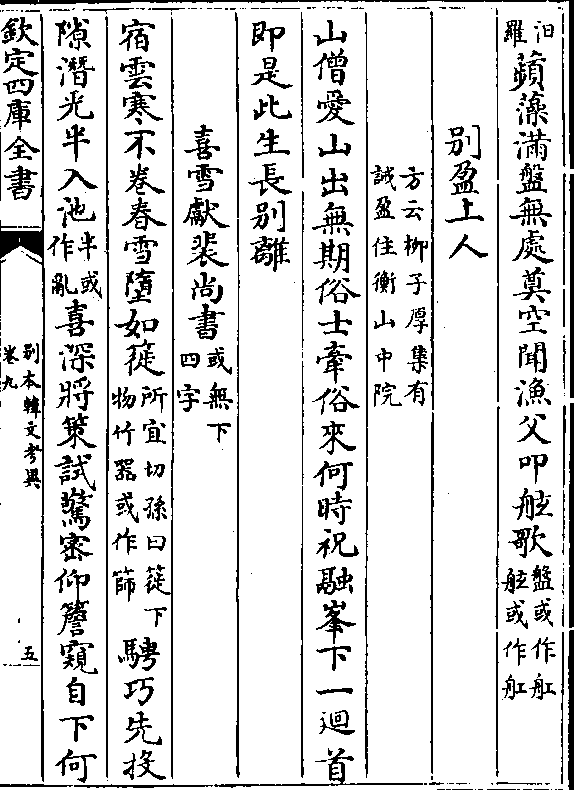 汨羅蘋藻滿盤無處奠空聞漁父叩舷歌盤或作舡舷或作舡
别盈上人
方云柳子厚集有
誠盈住衡山中院
山僧愛山出無期俗士牽俗來何時祝融峯下一迴首
即是此生長别離
喜雪獻裴尚書或無下四字
宿雲寒不卷春雪墮如簁所宜切孫曰簁下物竹器或作篩騁巧先投
隙潛光半入池半或作亂喜深將策試驚密仰簷窺自下何
欽定四庫全書
别本韓文考異
卷九
五